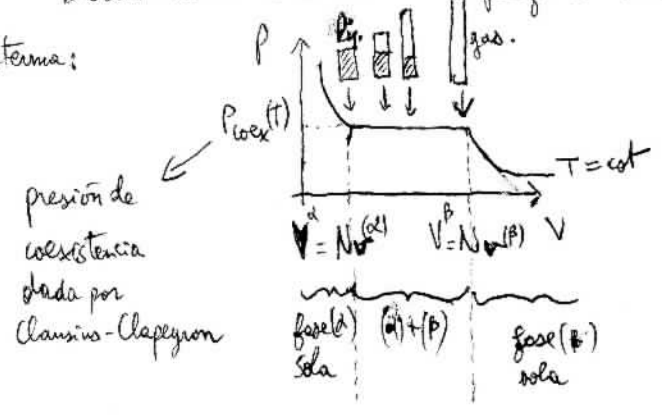 terma:
P
liq.
gas.
P_coex(T)
T = cst
presión de
coexistencia
dada por
Clausius-Clapeyron
V^α = Nv^(α)
V^β = Nv^(β)
V
fase (α)
sola
(α) + (β)
fase (β)
sola